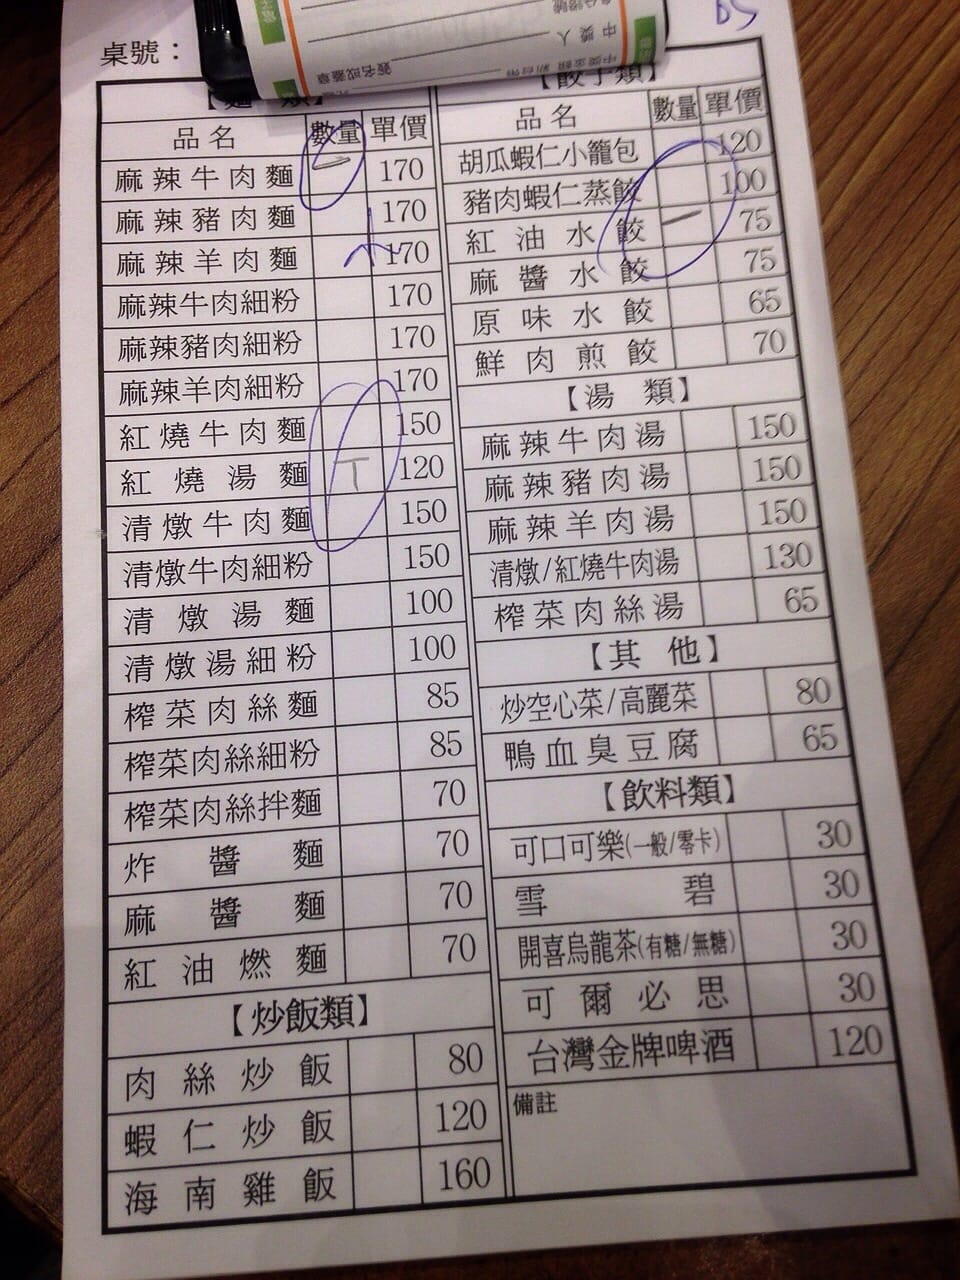 桌號：
【麵 類】
品名 數量 單價
麻辣牛肉麵 一 170
麻辣豬肉麵 170
麻辣羊肉麵 170
麻辣牛肉細粉 170
麻辣豬肉細粉 170
麻辣羊肉細粉 170
紅燒牛肉麵 150
紅燒湯麵 T 120
清燉牛肉麵 150
清燉牛肉細粉 150
清燉湯麵 100
清燉湯細粉 100
榨菜肉絲麵 85
榨菜肉絲細粉 85
榨菜肉絲拌麵 70
炸醬麵 70
麻醬麵 70
紅油燃麵 70
【炒飯類】
肉絲炒飯 80
蝦仁炒飯 120
海南雞飯 160
【餃子類】
品名 數量 單價
胡瓜蝦仁小籠包 120
豬肉蝦仁蒸餃 100
紅油水餃 一 75
麻醬水餃 75
原味水餃 65
鮮肉煎餃 70
【湯 類】
麻辣牛肉湯 150
麻辣豬肉湯 150
麻辣羊肉湯 150
清燉/紅燒牛肉湯 130
榨菜肉絲湯 65
【其 他】
炒空心菜/高麗菜 80
鴨血臭豆腐 65
【飲料類】
可口可樂(一般/零卡) 30
雪碧 30
開喜烏龍茶(有糖/無糖) 30
可爾必思 30
台灣金牌啤酒 120
備註
中獎人
簽名或蓋章
中獎金額 新台幣